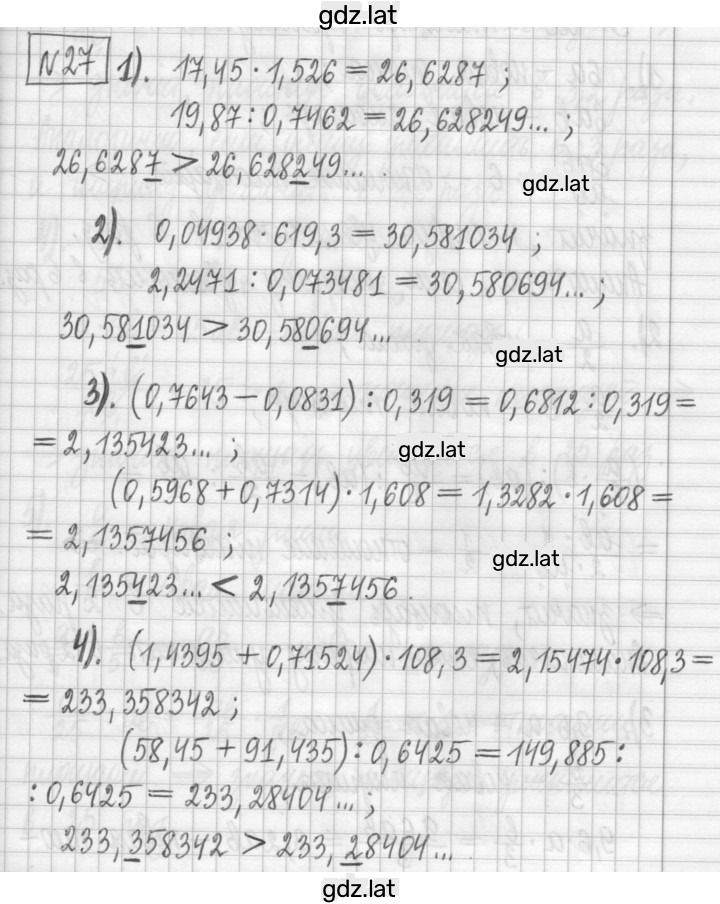 gdz.lat
N27 1). 17,45 · 1,526 = 26,6287 ;
19,87 : 0,7462 = 26,628249... ;
26,6287 > 26,628249... .
gdz.lat
2). 0,04938 · 619,3 = 30,581034 ;
2,2471 : 0,073481 = 30,580694... ;
30,581034 > 30,580694... .
gdz.lat
3). (0,7643 − 0,0831) : 0,319 = 0,6812 : 0,319 =
= 2,135423... ;
gdz.lat
(0,5968 + 0,7314) · 1,608 = 1,3282 · 1,608 =
= 2,1357456 ;
gdz.lat
2,135423... < 2,1357456 .
4). (1,4395 + 0,71524) · 108,3 = 2,15474 · 108,3 =
= 233,358342 ;
(58,45 + 91,435) : 0,6425 = 149,885 :
: 0,6425 = 233,28404... ;
233,358342 > 233,28404... .
gdz.lat